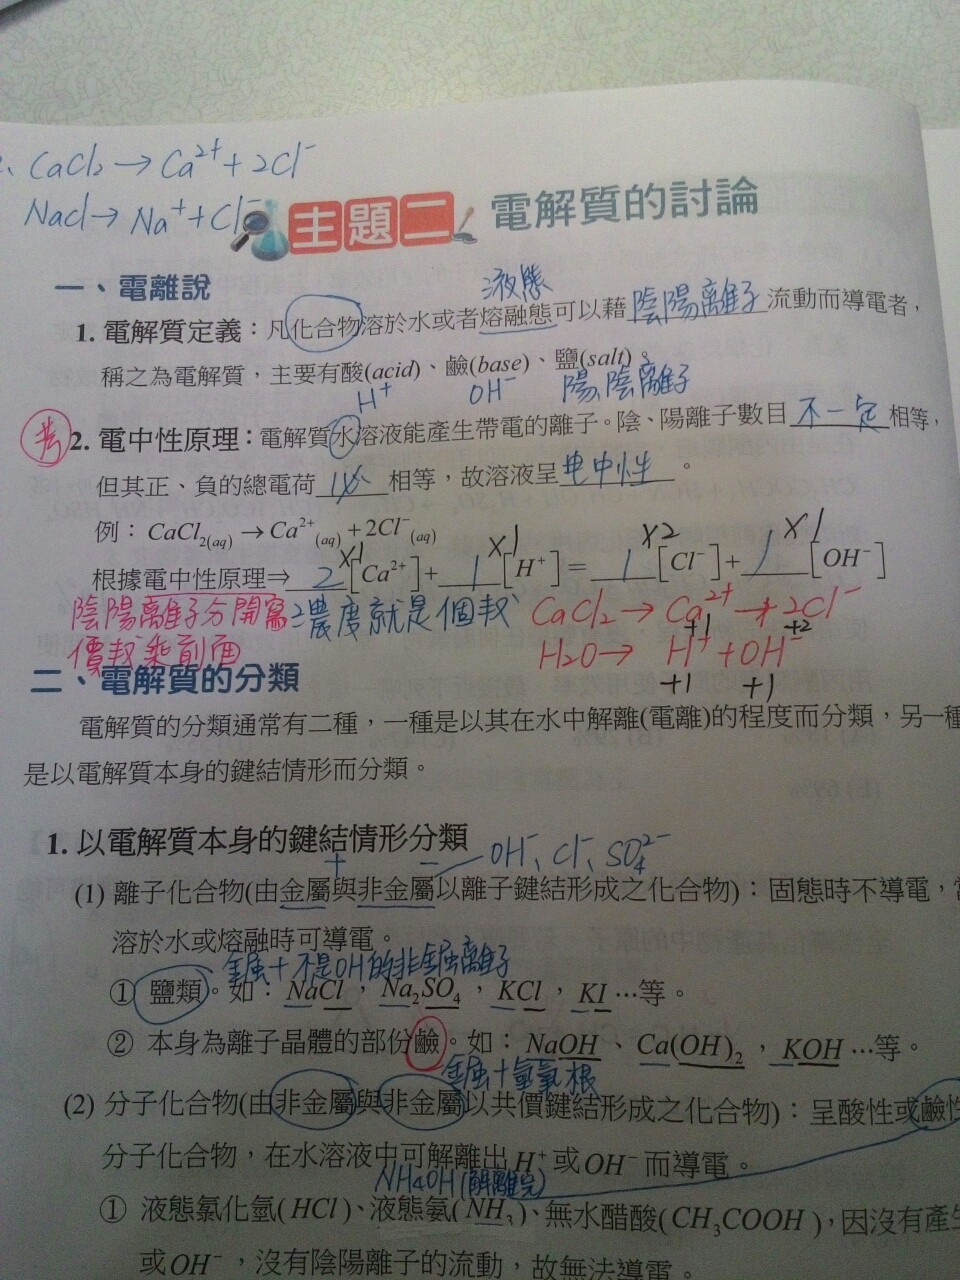 CaCl2 → Ca2+ + 2Cl-
Nacl → Na+ + Cl-
主題二 電解質的討論
一、電離說
液態
1. 電解質定義：凡化合物溶於水或者熔融態可以藉 陰陽離子 流動而導電者，
稱之為電解質，主要有酸(acid)、鹼(base)、鹽(salt)。
H+ OH- 陽,陰離子
考 2. 電中性原理：電解質水溶液能產生帶電的離子。陰、陽離子數目 不一定 相等，
但其正、負的總電荷 相等，故溶液呈 电中性 。
例：CaCl2(aq) → Ca2+(aq) + 2Cl-(aq)
x1 x1 x2 x1
根據電中性原理⇒ 2 [Ca2+] + 1 [H+] = 1 [Cl-] + 1 [OH-]
陰陽離子分開寫 濃度就是個數 CaCl2 → Ca2+ + 2Cl-
+1 +2
價数乘前面 H2O → H+ + OH-
+1 +1
二、電解質的分類
電解質的分類通常有二種，一種是以其在水中解離(電離)的程度而分類，另一種
是以電解質本身的鍵結情形而分類。
1. 以電解質本身的鍵結情形分類
+ - OH-、Cl-、SO42-
(1) 離子化合物(由金屬與非金屬以離子鍵結形成之化合物)：固態時不導電，
溶於水或熔融時可導電。
金属+不是OH的非金屬離子
① 鹽類。如：NaCl，Na2SO4，KCl，KI…等。
② 本身為離子晶體的部份鹼。如：NaOH、Ca(OH)2，KOH…等。
金属+氫氧根
(2) 分子化合物(由非金屬與非金屬以共價鍵結形成之化合物)：呈酸性或鹼性
分子化合物，在水溶液中可解離出H+或OH-而導電。
NH4OH(解離完)
① 液態氯化氫(HCl)、液態氨(NH3)、無水醋酸(CH3COOH)，因沒有產生
或OH-，沒有陰陽離子的流動，故無法導電。